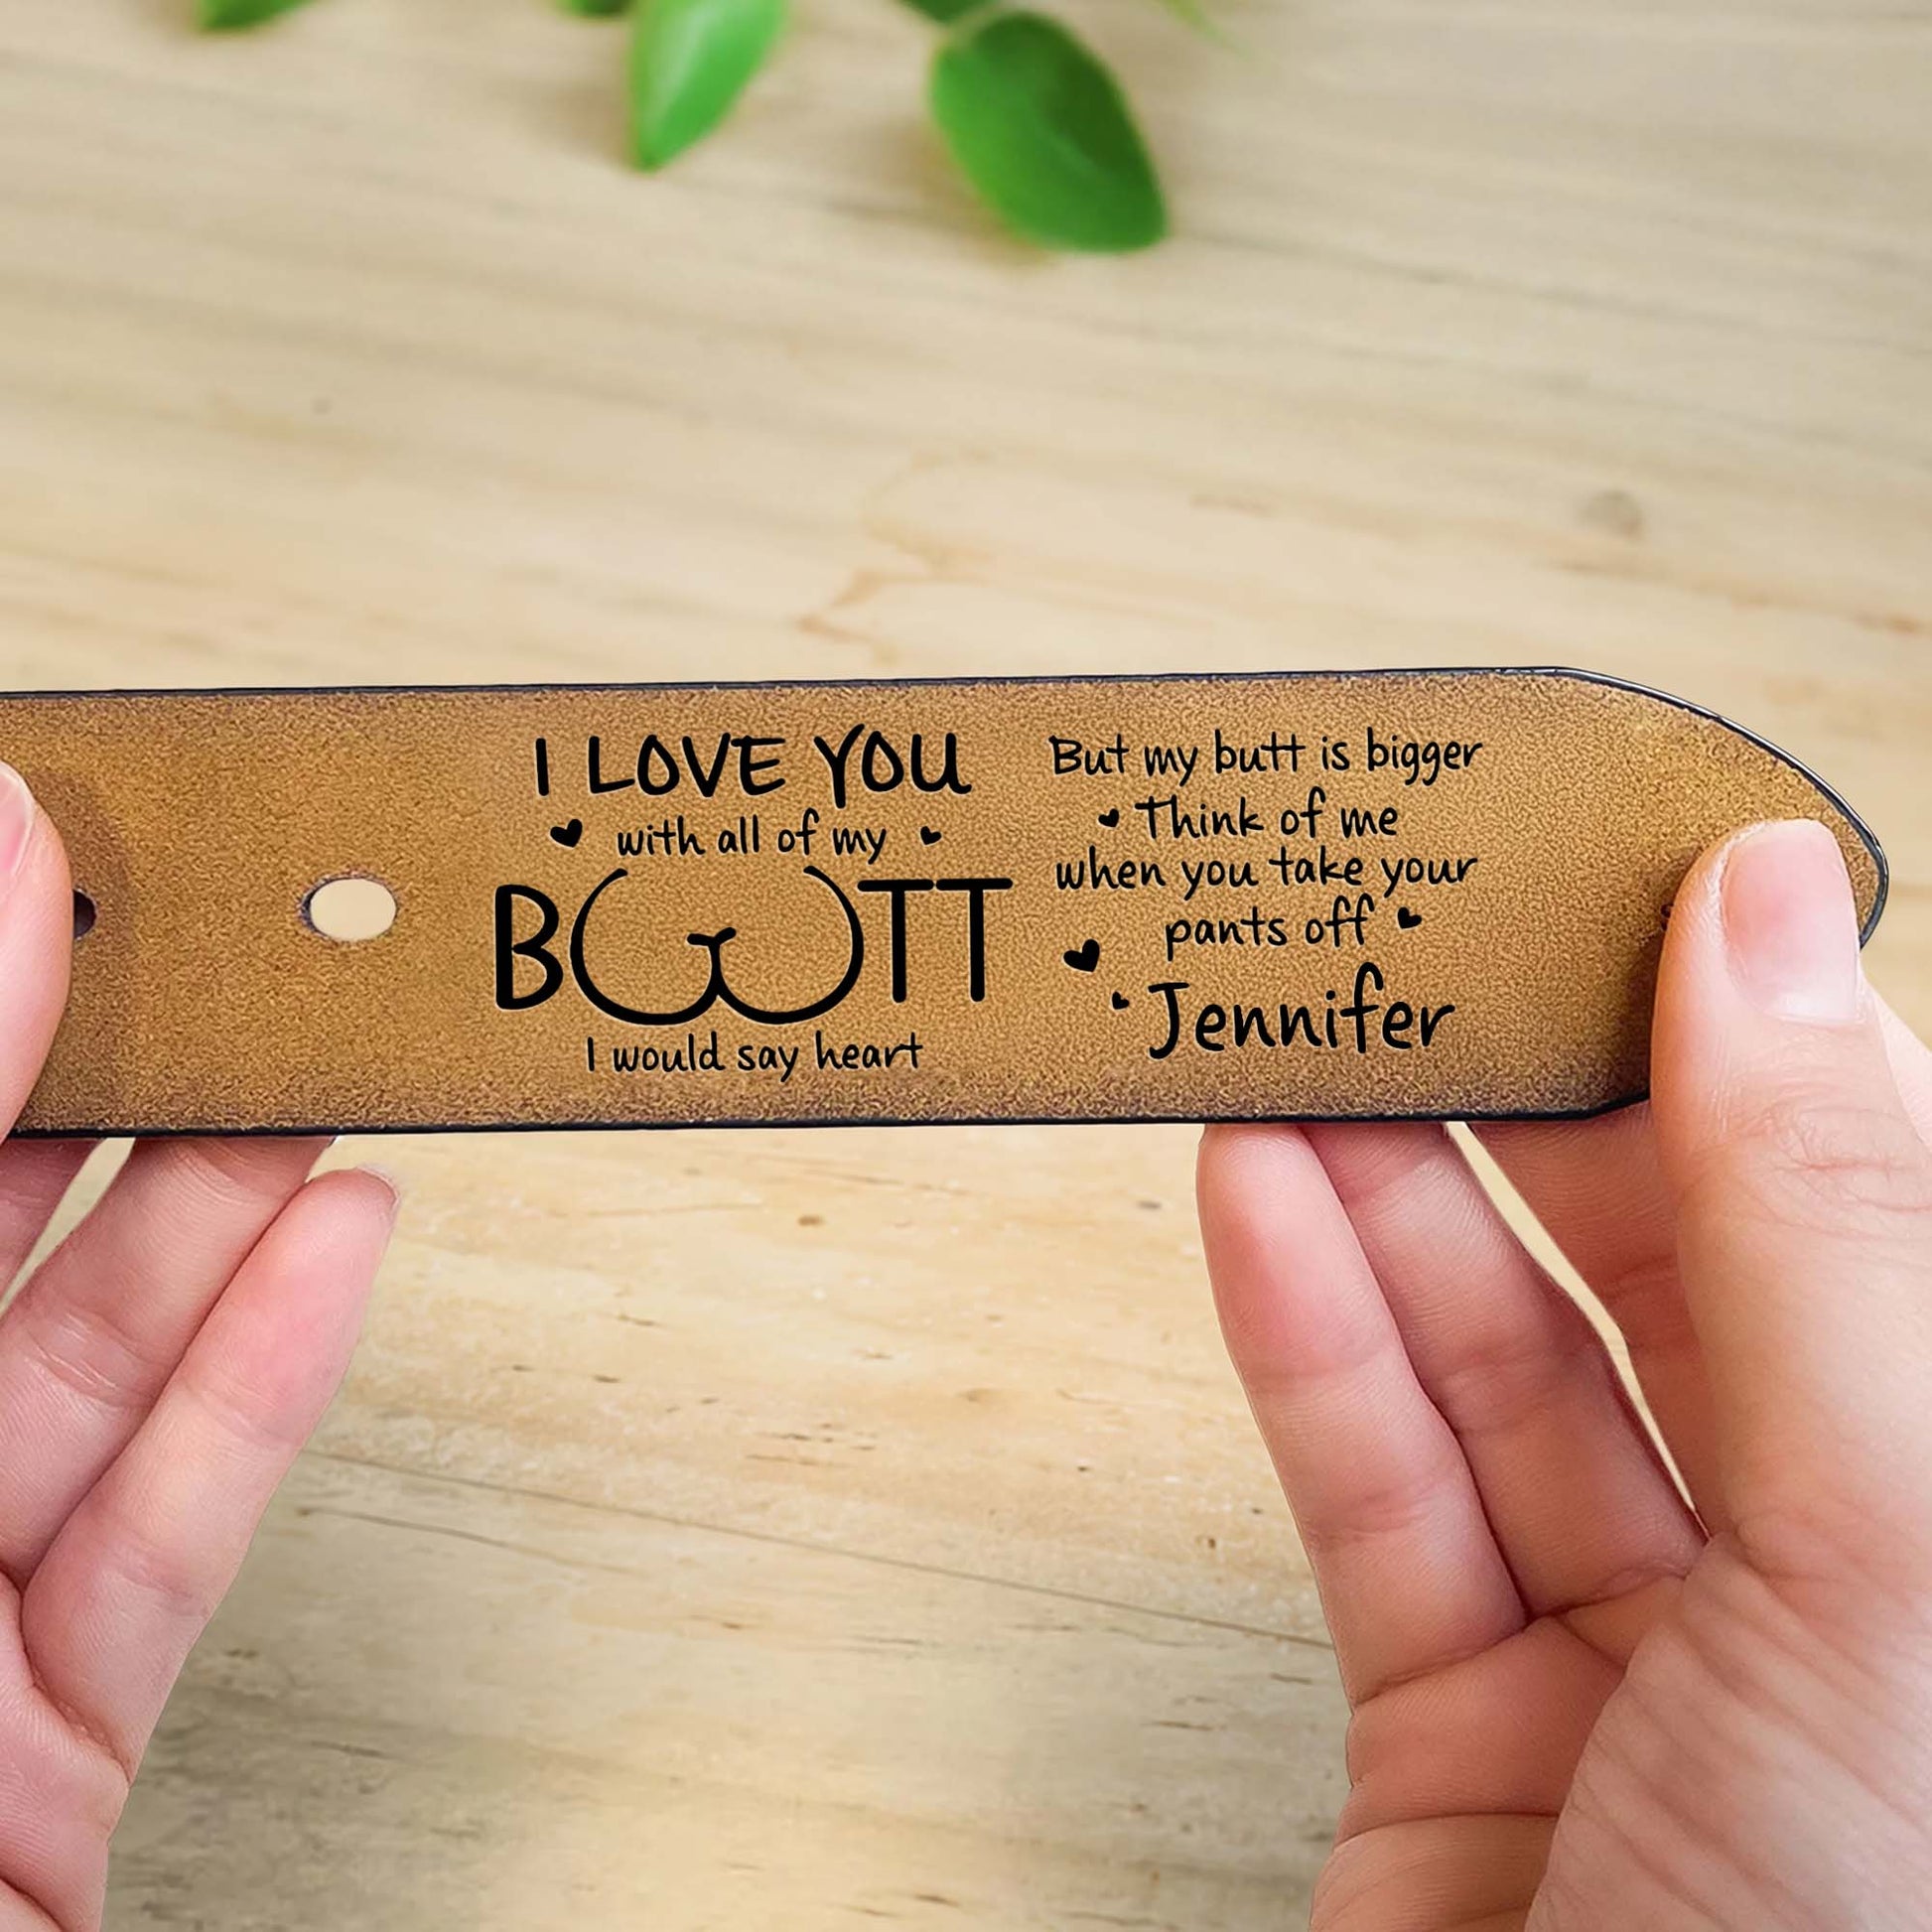 I LOVE YOU
with all of my
BUTT
I would say heart
But my butt is bigger
Think of me
when you take your
pants off
Jennifer